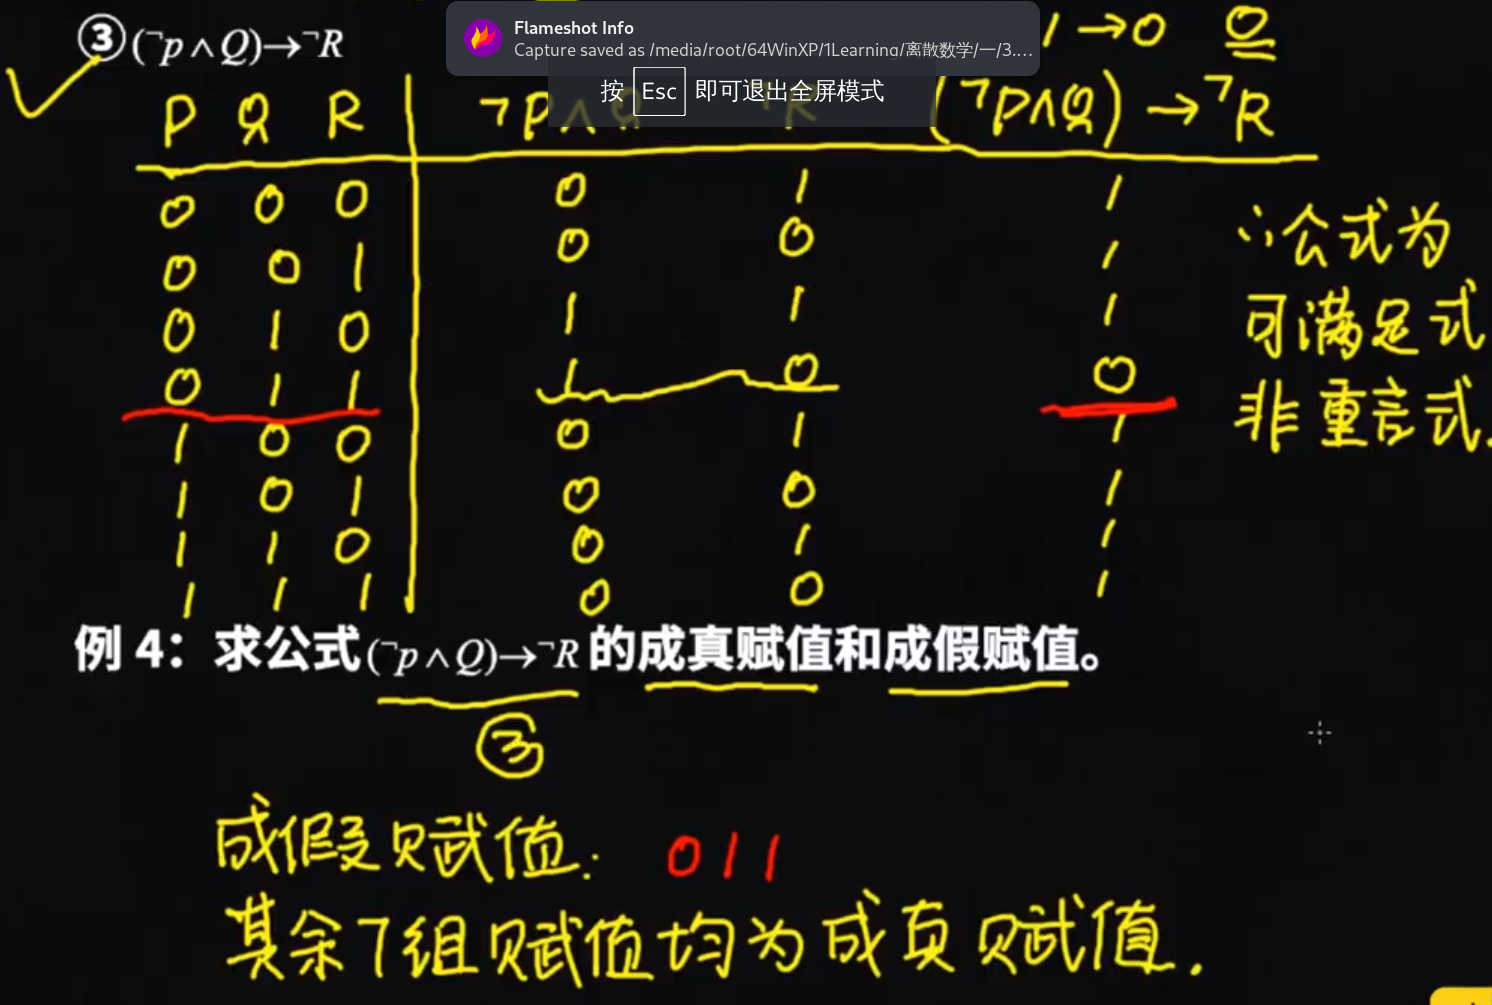 Flameshot Info
Capture saved as /media/root/64WinXP/1Learning/离散数学/一/3....
按 Esc 即可退出全屏模式
1→0 0
③(¬p∧Q)→¬R
P Q R ¬P∧Q ¬R (¬P∧Q)→¬R
0 0 0 0 1 1
0 0 1 0 0 1
0 1 0 1 1 1
0 1 1 1 0 0
1 0 0 0 1 1
1 0 1 0 0 1
1 1 0 0 1 1
1 1 1 0 0 1
∴公式为
可满足式
非重言式.
例 4：求公式(¬p∧Q)→¬R 的成真赋值和成假赋值。
③
成假赋值: 011
其余7组赋值均为成真赋值.